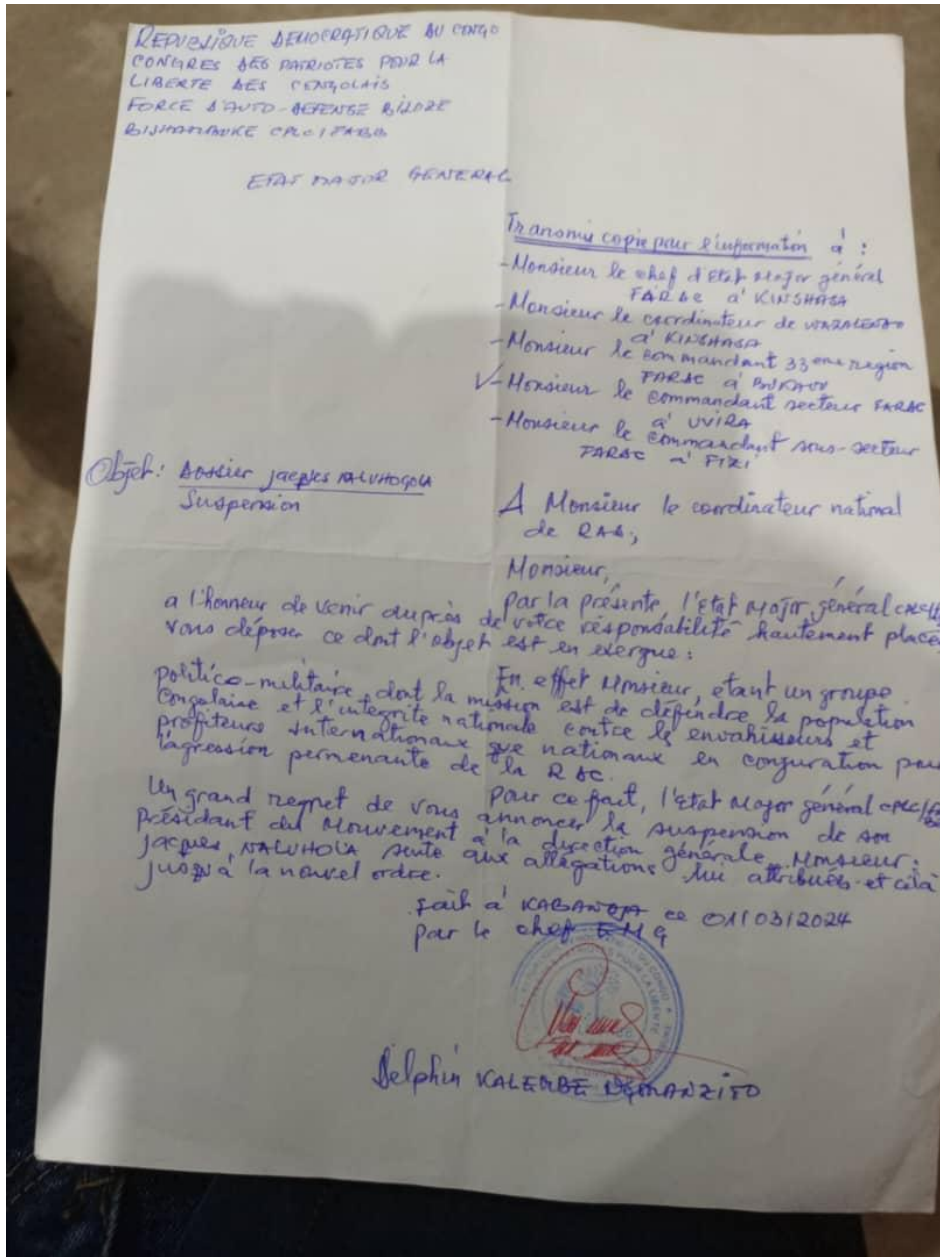 REPUBLIQUE DEMOCRATIQUE DU CONGO
CONGRES DES PATRIOTES POUR LA
LIBERTE DES CONGOLAIS
FORCE D'AUTO-DEFENSE BILOZE
BISHAMBUKE
ETAT MAJOR GENERAL
Transmis copie pour l'information à :
- Monsieur le chef d'Etat Major général
FARDC à KINSHASA
- Monsieur le coordinateur de WAZALENDO
à KINSHASA
- Monsieur le commandant 33eme region
FARDC à BUKAVU
- Monsieur le commandant secteur FARDC
à UVIRA
- Monsieur le commandant sous-secteur
FARDC à FIZI
Objet : Dossier jacques
Suspension
A Monsieur le coordinateur national
de
Monsieur,
par la présente, l'etat Major général
a l'honneur de venir auprès de votre responsabilité hautement placée
vous déposer ce dont l'objet est en exergue :
En effet Monsieur, etant un groupe
politico-militaire, dont la mission est de défendre la population
Congolaise et l'intégrité nationale contre les envahisseurs et
profiteurs internationaux que nationaux en conjuration pour
l'agression permenante de la RDC.
pour ce fait, l'etat Major général
Un grand regret de vous annoncer la suspension de son
présidant du Mouvement à la direction générale, Monsieur :
jacques suite aux allégations lui attribués et celà
jusqu'à la nouvel ordre.
Fait à ce 01/03/2024
par le chef EMG
Delphin